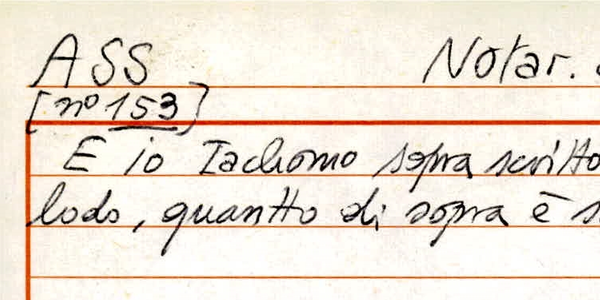 ASS Notar.
[nº 153]
E io Iachomo sopra scritto
lodo, quantto di sopra è s